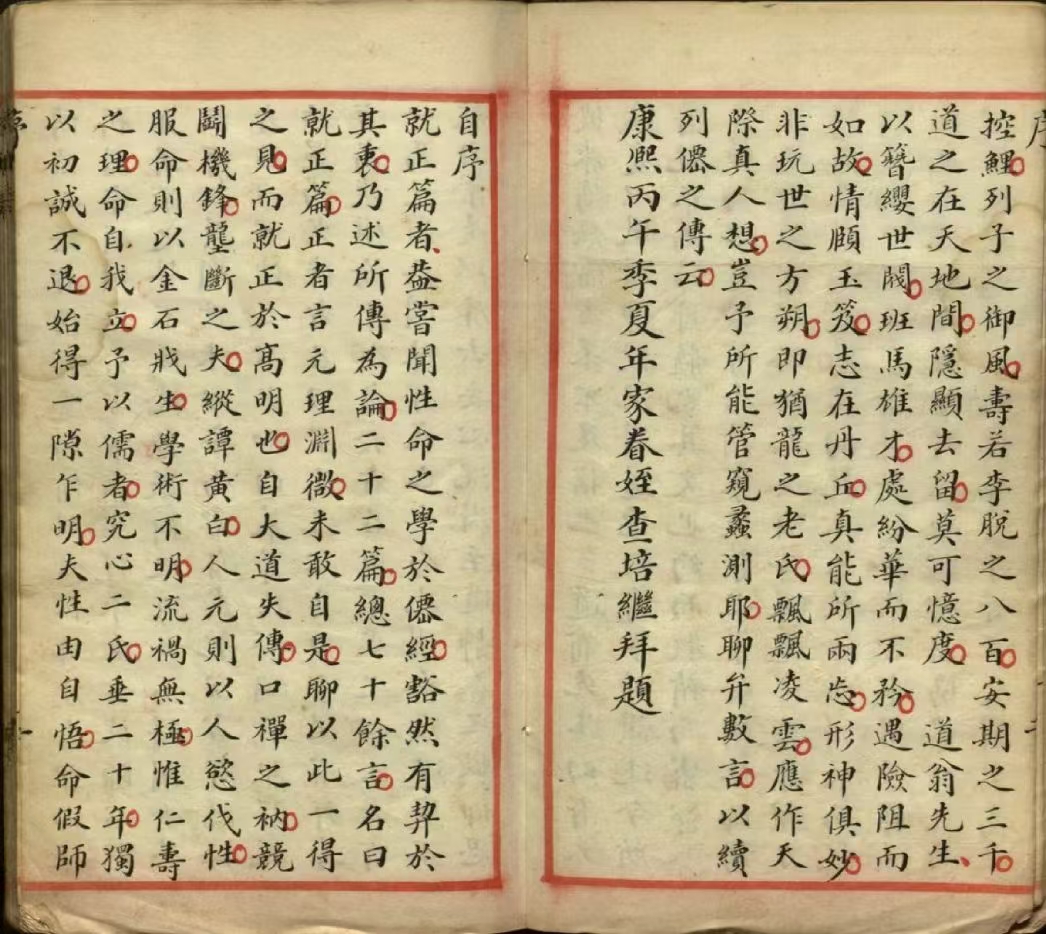 序
控鯉列子之御風壽若李脫之八百安期之三千
道之在天地間隱顯去留莫可憶度 道翁先生
以簪纓世閥班馬雄才處紛華而不矜遇險阻而
如故情頤玉笈志在丹丘真能所兩忘形神俱妙
非玩世之方朔即猶龍之老氏飄飄凌雲應作天
際真人想豈予所能管窺蠡測耶聊弁數言以續
列僊之傳云
康熙丙午季夏年家眷姪查培繼拜題
自序
就正篇者葢嘗聞性命之學於僊經豁然有契於
其衷乃述所傳為論二十二篇總七十餘言名曰
就正篇正者言元理淵微未敢自是聊以此一得
之見而就正於高明也自大道失傳口禪之衲競
鬪機鋒壟斷之夫縱譚黃白人元則以人慾伐性
服命則以金石戕生學術不明流禍無極惟仁壽
之理命自我立予以儒者究心二氏垂二十年獨
以初誠不退始得一隙乍明夫性由自悟命假師